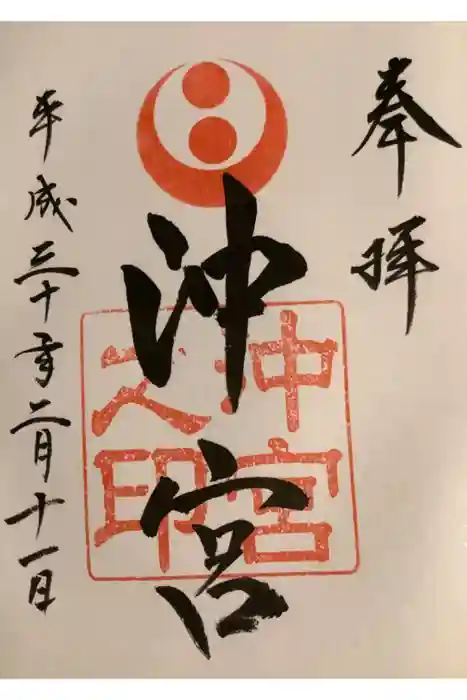 奉拝
沖宮
沖宮
之印
平成三十年二月十一日